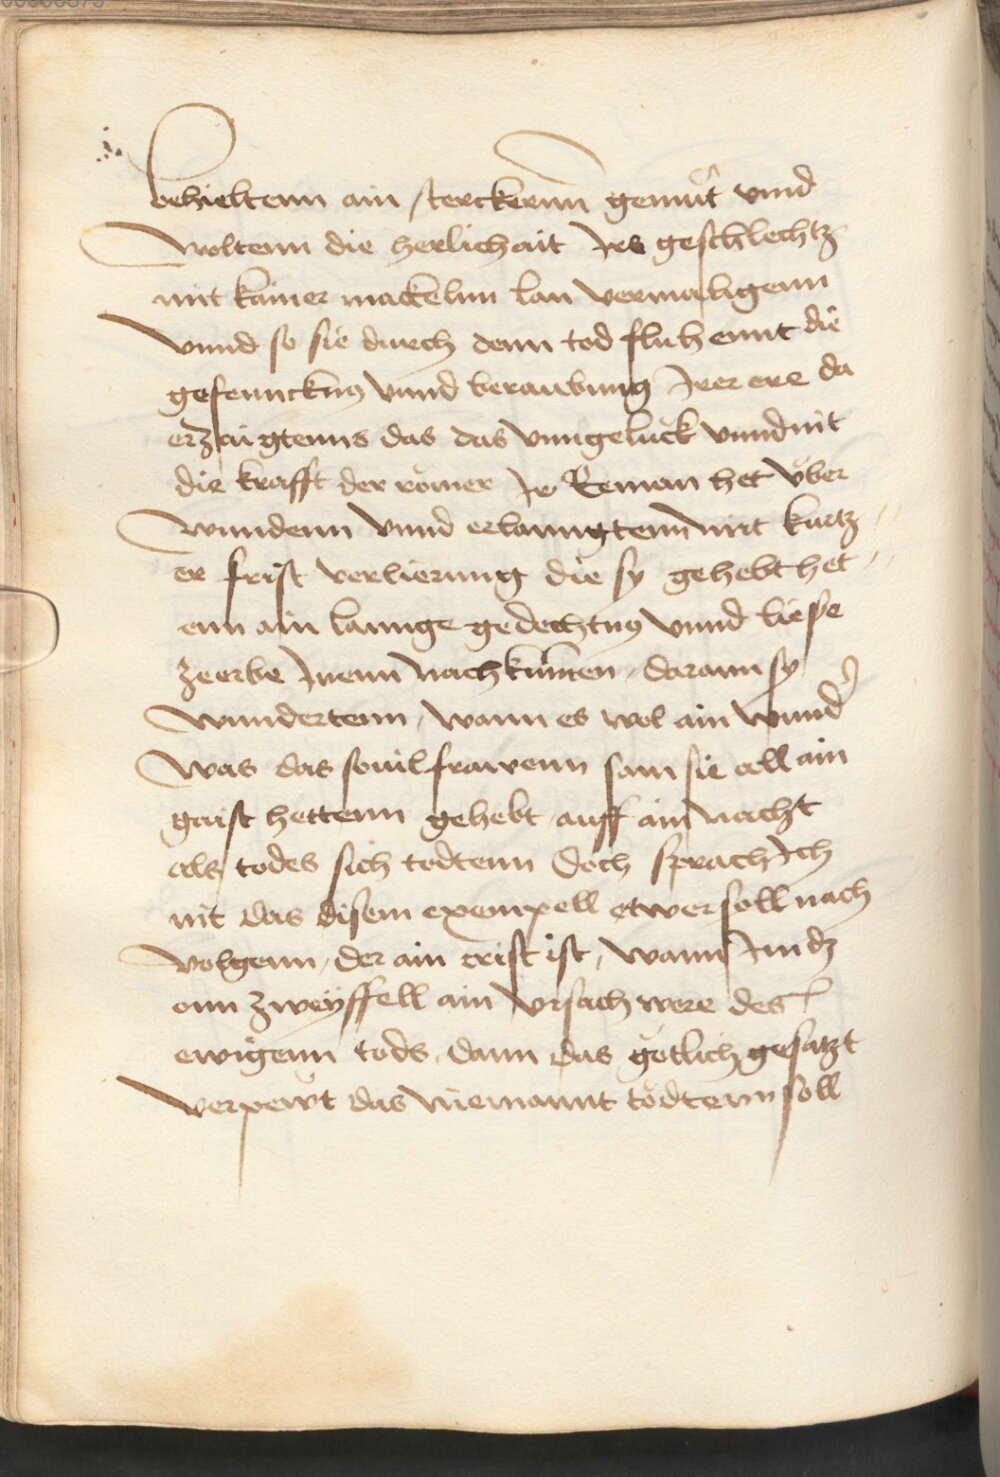 behieltenn ain sterckernn gemût vnnd
woltenn die herlichait Irs geschlechtz
mit kainer mackelnn lan vermaligenn
vnnd so sie durch denn tod fluhennt die
gefennckng vnnd beraubung Irer ere da
erzaigtenns das das vnngelück vnnd nit
die krafft der römer Ir Reman het über
wundenn vnnd erlanngtenn mit kurtz
er frist verlierung die sy gehebt het
enn ain lannge gedechtng vnnd liesse
ze erbe Irenn nachkumen, darann sy
wundertenn, wann es wol ain wund
was das souil frawenn sam sie all ain
gaist hettenn gehebt auff ain nacht
als todes sich todtenn Doch sprach Ich
nit das disem exempell etwer soll nach
volgenn, der ain crist ist, wann Im dz
onn zweyffell ain vrsach were des
ewigenn tods, dann das götlich gesatzt
verpewt das niemannt tödtenn soll